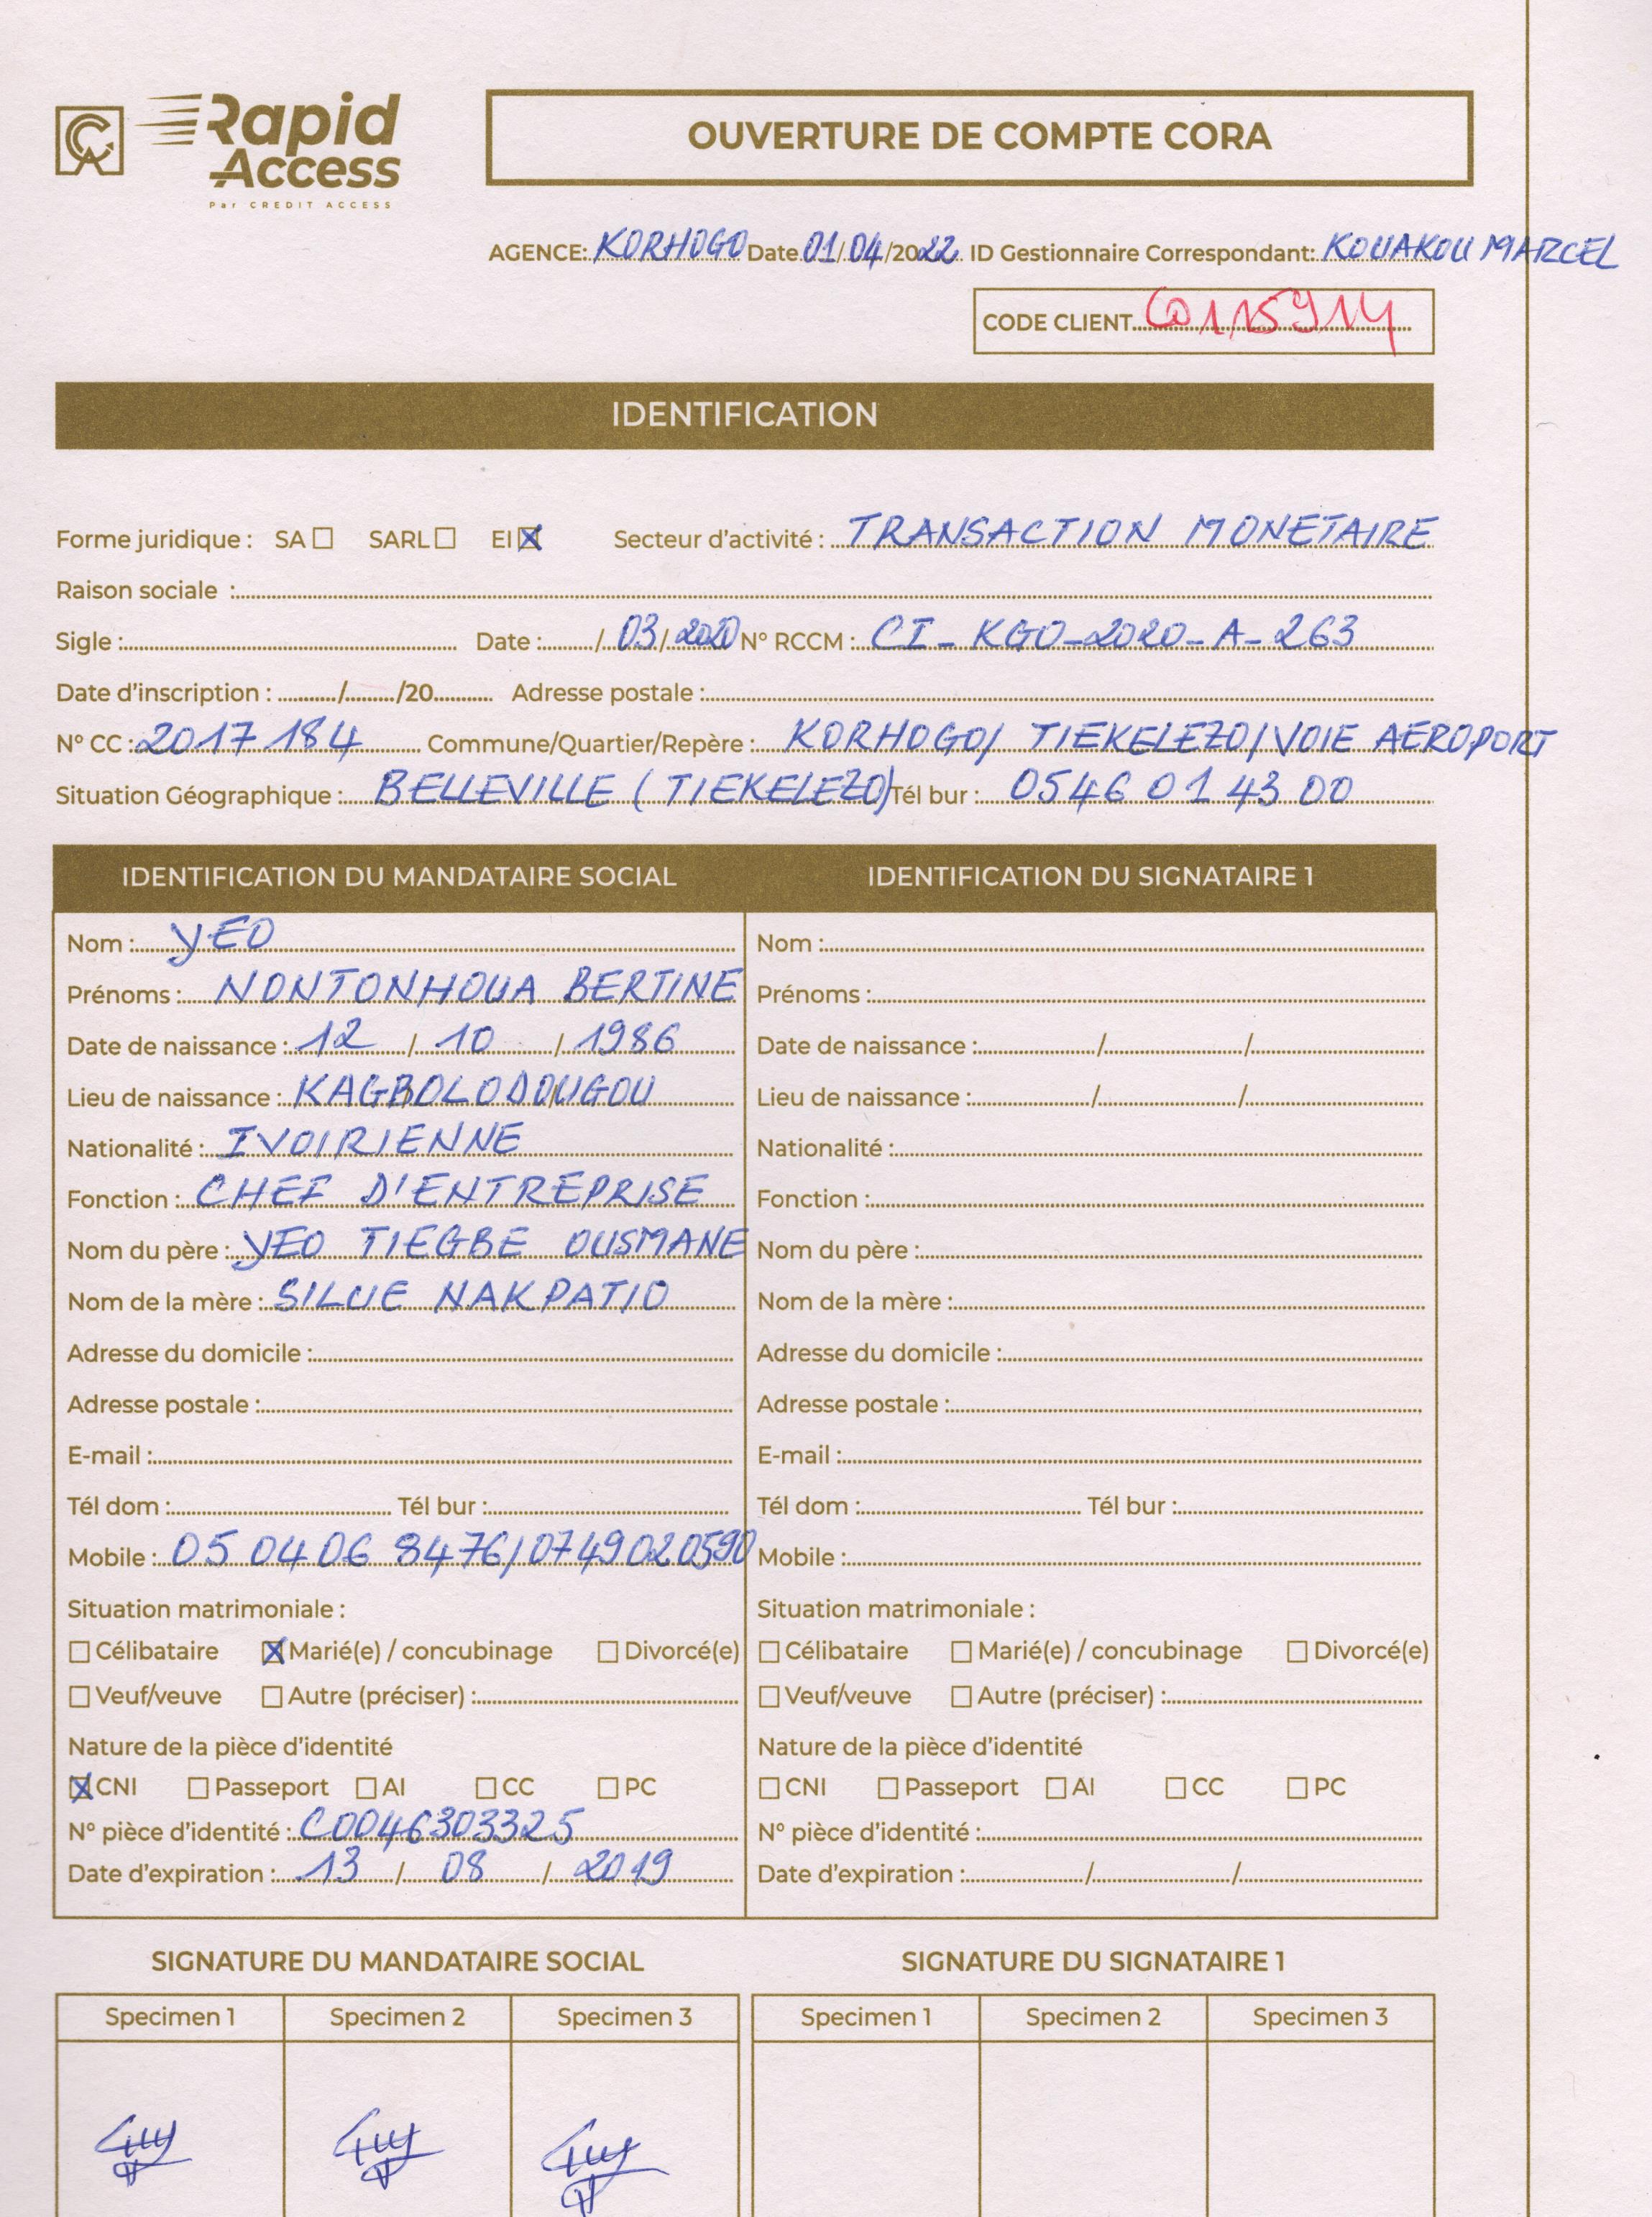 CA Rapid Access
Par CREDIT ACCESS
OUVERTURE DE COMPTE CORA
AGENCE: KORHOGO Date 01/04/2022 ID Gestionnaire Correspondant: KOUAKOU MARCEL
CODE CLIENT C0115914
IDENTIFICATION
Forme juridique : SA ☐ SARL ☐ EI ☒ Secteur d'activité : TRANSACTION MONETAIRE
Raison sociale :
Sigle : Date : / 03 / 2020 N° RCCM : CI-KGO-2020-A-263
Date d'inscription : / /20 Adresse postale :
N° CC : 2017184 Commune/Quartier/Repère : KORHOGO/ TIEKELEZO/VOIE AEROPORT
Situation Géographique : BELLEVILLE (TIEKELEZO) Tél bur : 0546 01 43 00
IDENTIFICATION DU MANDATAIRE SOCIAL
Nom : YEO
Prénoms : NONTONHOUA BERTINE
Date de naissance : 12 / 10 / 1986
Lieu de naissance : KAGBOLODOUGOU
Nationalité : IVOIRIENNE
Fonction : CHEF D'ENTREPRISE
Nom du père : YEO TIEGBE OUSMANE
Nom de la mère : SILUE NAKPATIO
Adresse du domicile :
Adresse postale :
E-mail :
Tél dom : Tél bur :
Mobile : 05 04 06 8476/0749020590
Situation matrimoniale :
☐ Célibataire ☒ Marié(e) / concubinage ☐ Divorcé(e)
☐ Veuf/veuve ☐ Autre (préciser) :
Nature de la pièce d'identité
☒ CNI ☐ Passeport ☐ AI ☐ CC ☐ PC
N° pièce d'identité : C0046303325
Date d'expiration : 13 / 08 / 2019
IDENTIFICATION DU SIGNATAIRE 1
Nom :
Prénoms :
Date de naissance : / /
Lieu de naissance : / /
Nationalité :
Fonction :
Nom du père :
Nom de la mère :
Adresse du domicile :
Adresse postale :
E-mail :
Tél dom : Tél bur :
Mobile :
Situation matrimoniale :
☐ Célibataire ☐ Marié(e) / concubinage ☐ Divorcé(e)
☐ Veuf/veuve ☐ Autre (préciser) :
Nature de la pièce d'identité
☐ CNI ☐ Passeport ☐ AI ☐ CC ☐ PC
N° pièce d'identité :
Date d'expiration : / /
SIGNATURE DU MANDATAIRE SOCIAL
Specimen 1 Specimen 2 Specimen 3
SIGNATURE DU SIGNATAIRE 1
Specimen 1 Specimen 2 Specimen 3